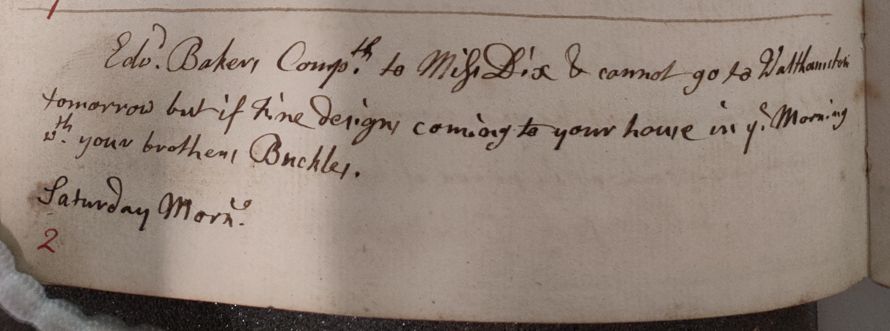 Edwd. Bakers Compth. to Miss Dix & cannot go to Walthamston
tomorrow but if Fine designs coming to your house in ye. Morning
wth. your brothers Buckles.
Saturday Morng.
2